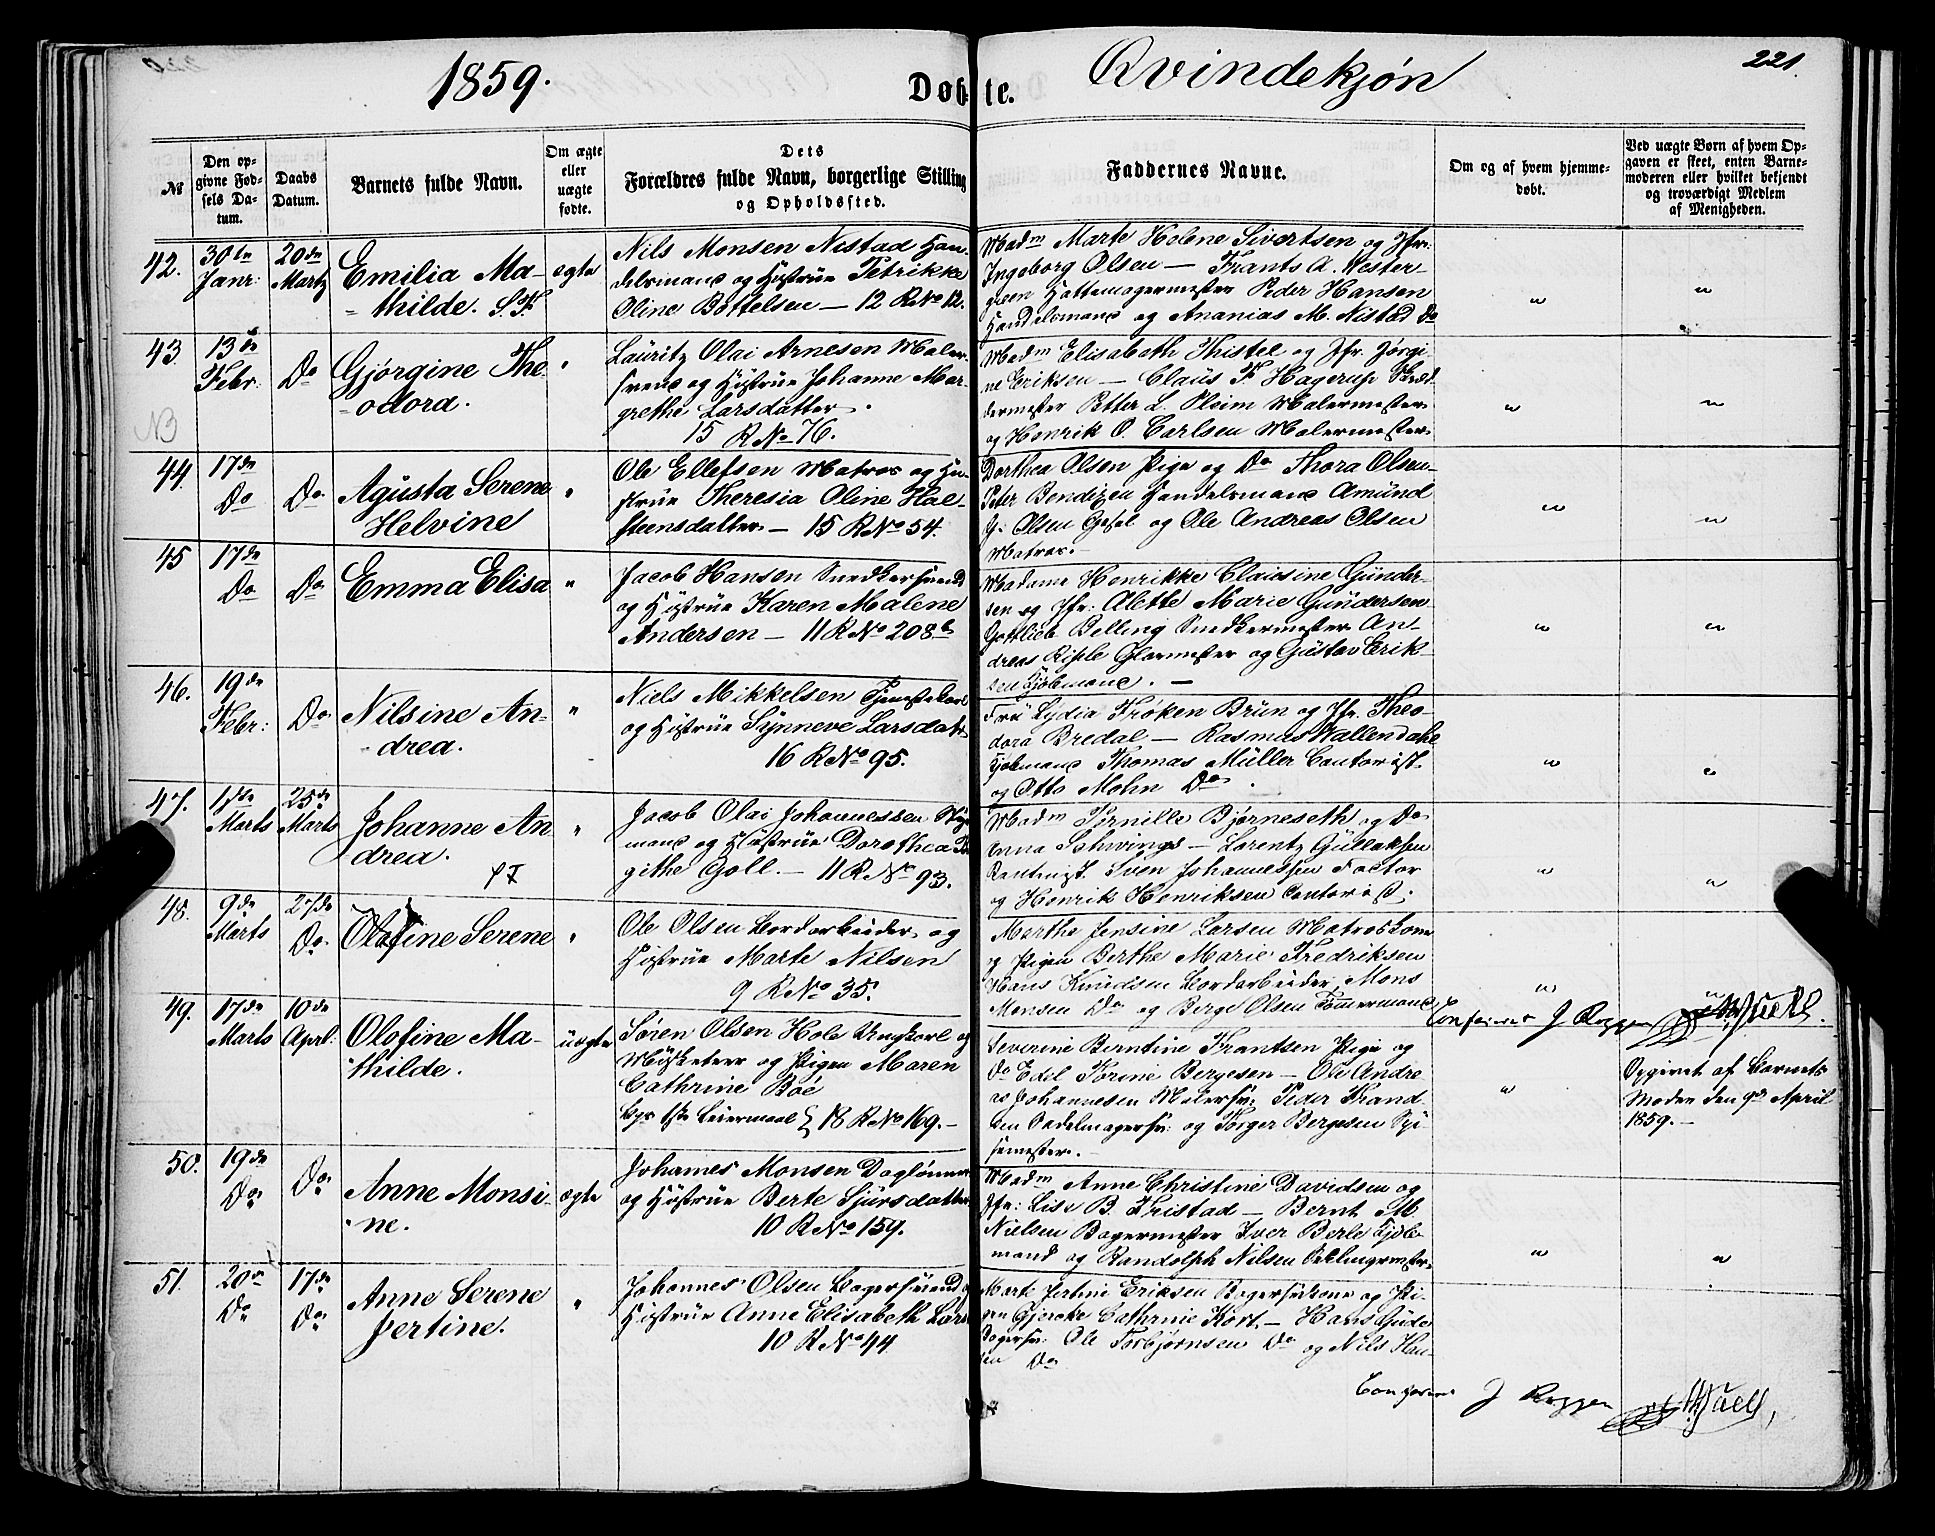 1859.
Døbte.
Qvindekjøn
221.
№
Den opgivne Fødsels Datum.
Daabs Datum.
Barnets fulde Navn.
Om ægte eller uægte fødte.
Dets Forældres fulde Navn, borgerlige Stilling og Opholdssted.
Faddernes Navne.
Om og af hvem hjemmedøbt.
Ved uægte Børn af hvem Opgaven er skeet, enten Barnemoderen eller hvilket bekjendt og troværdigt Medlem af Menigheden.
42.
30te Janr:
20de Marts
Emilia Ma-
thilde.
ægte
Nils Monsen Nistad Han-
delsmand og Hustrüe Petrikke
Oline Bottelsen — 12 R No 12.
Madm Marte Helene Sivertsen og Jfr:
Ingeborg Olsen — Frants A. Wester-
green Hattemagermester Peder Hansen
Handelsmand og Ananias M. Nistad Do
"
"
43.
13de Febr.
Do
Gjørgine The-
odora.
"
Lauritz Olai Arnesen Maler-
svend og Hustrüe Johanne Mar-
grethe Larsdatter.
15 R No 76.
Madm Elisabeth Thistel og Jfr. Jørgi-
ne Eriksen — Claüs F Hagerup
Petter L. Pleim Malermester
og Henrik O. Carlsen Malermester.
"
"
NB
44.
17de Do
Do
Agüsta Serene
Helvine
"
Ole Ellefsen Matros og Hu-
strüe Theresia Oline Hal-
steensdatter — 15 R No 54.
Dorthea Olsen Pige og Do Thora Olsen
Peter Bendixen Handelsmand Amünd
G: Olsen Gesel og Ole Andreas Olsen
Matros.
"
"
45
17de Do
Do
Emma Elisa
"
Jacob Hansen Snedkersvend
og Hustrüe Karen Malene
Andersen — 11 R No 208b
Madame Henrikke Claüsine Günder-
sen og Jfr. Alette Marie Gündersen
Gottlieb Belling Snedkermester An-
dreas Glarmester og Güstav Erik-
sen Kjøbmand. —
"
"
46.
19de Febr:
Do
Nilsine An-
drea.
"
Niels Mikkelsen Tjenestekarl
og Hustrüe Synneve Larsdatr
16 R No 95.
Frü Lydia Frøken Brün og Jfr. Theo-
dora Bredal — Rasmus Wallendahl
Kjøbmand Thomas Müller Cantorist
og Otto Mohn Do.
"
"
47.
1ste Marts
25de Marts
Johanne An
drea.
"
Jacob Olai Johannessen
mand og Hustrüe Dorothea
githe Goll. — 11 R No 93.
Madm Pernille Bjørneseth og Do
Anna Schwings — Lorentz Güllaksen
Sven Johannessen Factor
og Henrik Henriksen Cantorist.
"
"
48.
9de Marts
27de Do.
Olefine Serene
"
Ole Olsen Jordarbeider og
Hustrüe Marte Nilsen
9 R No 35.
Marthe Jensine Larsen Matroskone
og Pigen Berthe Marie Fredriksen
Hans Knüdsen Jordarbeider, Mons
Monsen Do og Berge Olsen Tømermand
"
"
Confereret J Roggen
49.
17de Marts
10de Apri:
Olofine Ma-
thilde.
üægte
Søren Olsen Hole Ungkarl og
Müsketeer og Pigen Maren
Cathrine Boe
Leiermaal } 18 R No 169. —
Severine Berntine Frantsen Pige og
Do Edel Torine Bergesen — Ole Andre
as Johannesen Malersv: Peder
sen Sadelmagersv: og Torger Bergesen
"
Opgivet af Barnets
Moder den 9de April
1859. —
50.
19de Do.
Do.
Anne Monsi-
ne.
ægte
Johannes Monsen Dagløner
og Hustrüe Berte Sjürsdatter
10 R No 159.
Madm Anne Christine Davidsen og
Jfr: Lise B. Fristad — Bernt M
Nielsen Bagermester Iver Berle Kjøb-
mand og Randolph Nilsen
"
"
51.
20de Do
17de Do.
Anne Serene
Jertine.
"
Johannes Olsen Bagersvend og
Hustrüe Anne Elisabeth Lars
10 R No 44
Marte Jertine Eriksen og Pi-
gen Gjerche Cathrine Kort. — Hans Güde
Bagersv: Ole Torbjørnsen Do og Nils Han-
sen Do
Confereret J Roggen